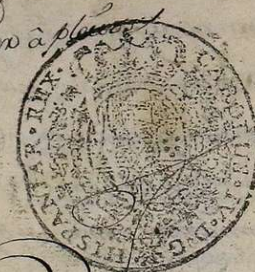 à
CAROLUS·IV·D·G·HISPANIAR·REX·